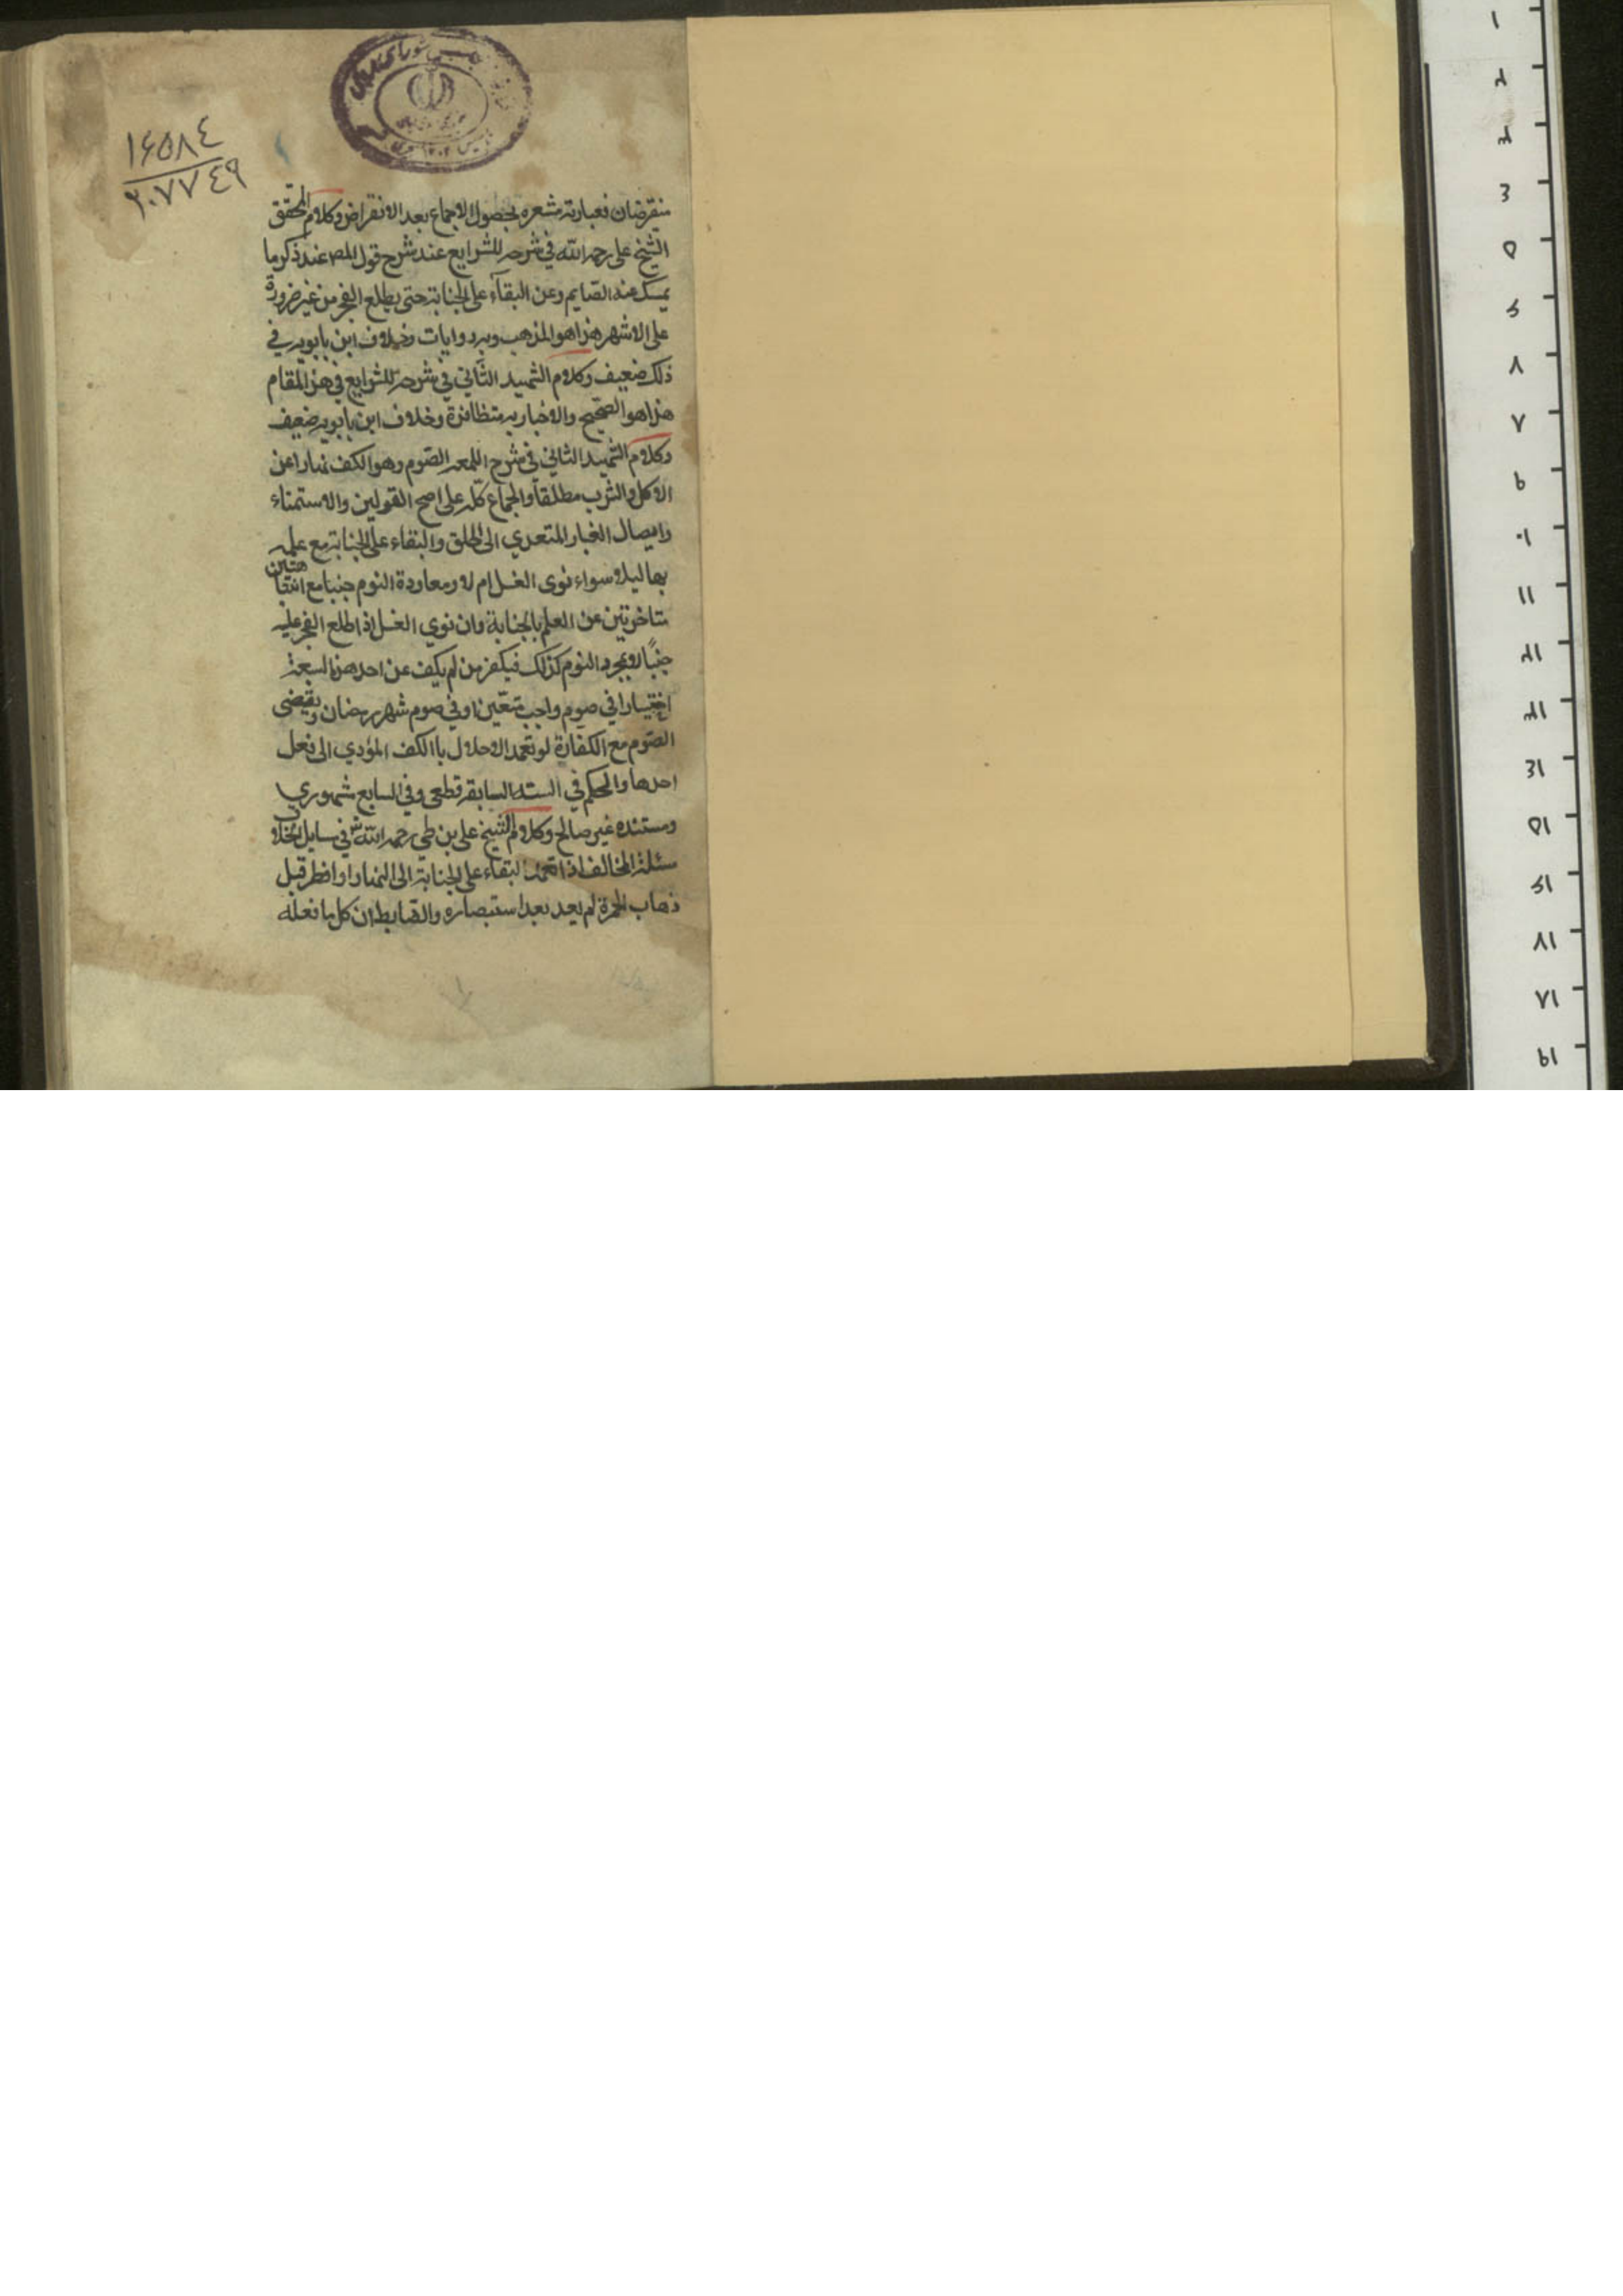 ١۶۵٨٤
٢٠٧٧٤٩
منقرضان فعبارته مشعره بحصول الاجماع بعد الانقراض وكلام المحقق
الشيخ على رحمه الله في شرحه للشرايع عند شرح قول المص عند ذكر ما
يمسك عنه الصايم وعن البقآء على الجنابة حتى يطلع الفجر من غير ضرورة
على الاشهر هذا هو المذهب وبه روايات وخلاف ابن بابويه في
ذلك ضعيف وكلام الشهيد الثاني في شرحه للشرايع في هذا المقام
هذا هو الصحيح والاخبار به متظافرة وخلاف ابن بابويه ضعيف
وكلام الشهيد الثاني في شرح اللمعه الصوم وهو الكف نهارا عن
الاكل والشرب مطلقا والجماع كله على اصح القولين والاستمناء
وايصال الغبار المتعدي الى الحلق والبقاء على الجنابة مع علمه
بها ليلا سواء نوى الغسل ام لا ومعاودة النوم جنبا مع انتباهتين
متاخرتين عن العلم بالجنابة وان نوي الغسل اذا طلع الفجر عليه
جنبًا لا بمجرد النوم كذلك فيكفر من لم يكف عن احد هذه السبعة
اختيارا في صوم واجب متعين او في صوم شهر رمضان ويقضى
الصوم مع الكفارة لو تعمد الاخلال باالكف المؤدي الى فعل
احدها والحكم في الستة السابقة قطعى وفي السابع شهوري
ومستنده غير صالح وكلام الشيخ على بن طي رحمه الله في مسايل الخلاف
مسئلة المخالف اذا تعمد البقاء على الجنابة الى النهار او افطر قبل
ذهاب الحمرة لم يعد بعد استبصاره والضابط ان كل ما فعله
١
٢
٣
٤
٥
٦
٧
٨
٩
١٠
١١
١٢
١٣
١٤
١٥
١٦
١٧
١٨
١٩